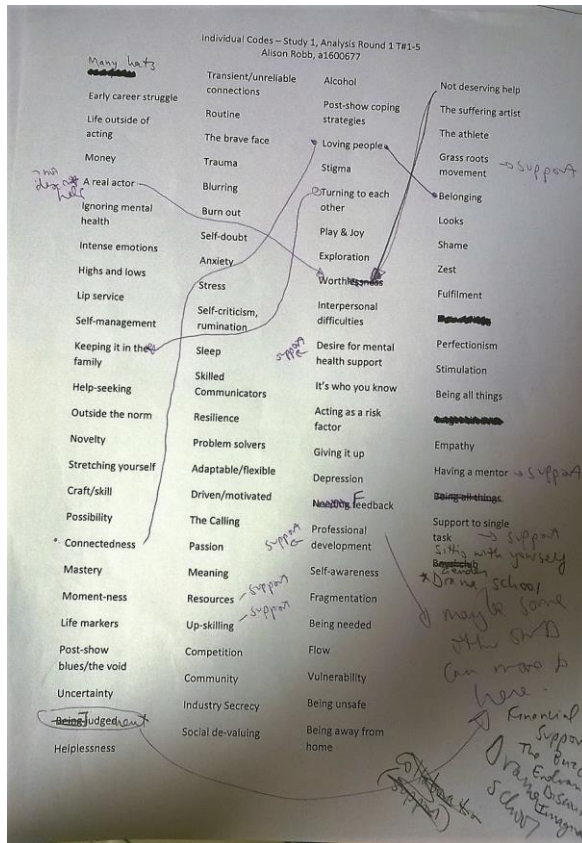 Individual Codes – Study 1, Analysis Round 1 T#1-5
Alison Robb, a1600677
Many hats
Early career struggle
Life outside of
acting
Money
A real actor
Ignoring mental
health
Intense emotions
Highs and lows
Lip service
Self-management
Keeping it in the
family
Help-seeking
Outside the norm
Novelty
Stretching yourself
Craft/skill
Possibility
Connectedness
Mastery
Moment-ness
Life markers
Post-show
blues/the void
Uncertainty
Being Judgement
Helplessness
Transient/unreliable
connections
Routine
The brave face
Trauma
Blurring
Burn out
Self-doubt
Anxiety
Stress
Self-criticism,
rumination
Sleep
Skilled
Communicators
Resilience
Problem solvers
Adaptable/flexible
Driven/motivated
The Calling
Passion
Meaning
Resources - support
Up-skilling - support
Competition
Community
Industry Secrecy
Social de-valuing
Alcohol
Post-show coping
strategies
Loving people
Stigma
Turning to each
other
Play & Joy
Exploration
Worthlessness
Interpersonal
difficulties
support Desire for mental
health support
It's who you know
Acting as a risk
factor
Giving it up
Depression
Needing Feedback
support Professional
development
Self-awareness
Fragmentation
Being needed
Flow
Vulnerability
Being unsafe
Being away from
home
Not deserving help
The suffering artist
The athlete
Grass roots
movement → support
Belonging
Looks
Shame
Zest
Fulfilment
Perfectionism
Stimulation
Being all things
Empathy
Having a mentor → support
Being all things
Support to single
task → support
Sittig with yourself
* Drama school
maybe some
other stuff
can move to
here.
Financial
Support
The Buzz
Drama
School
Collaboration
support